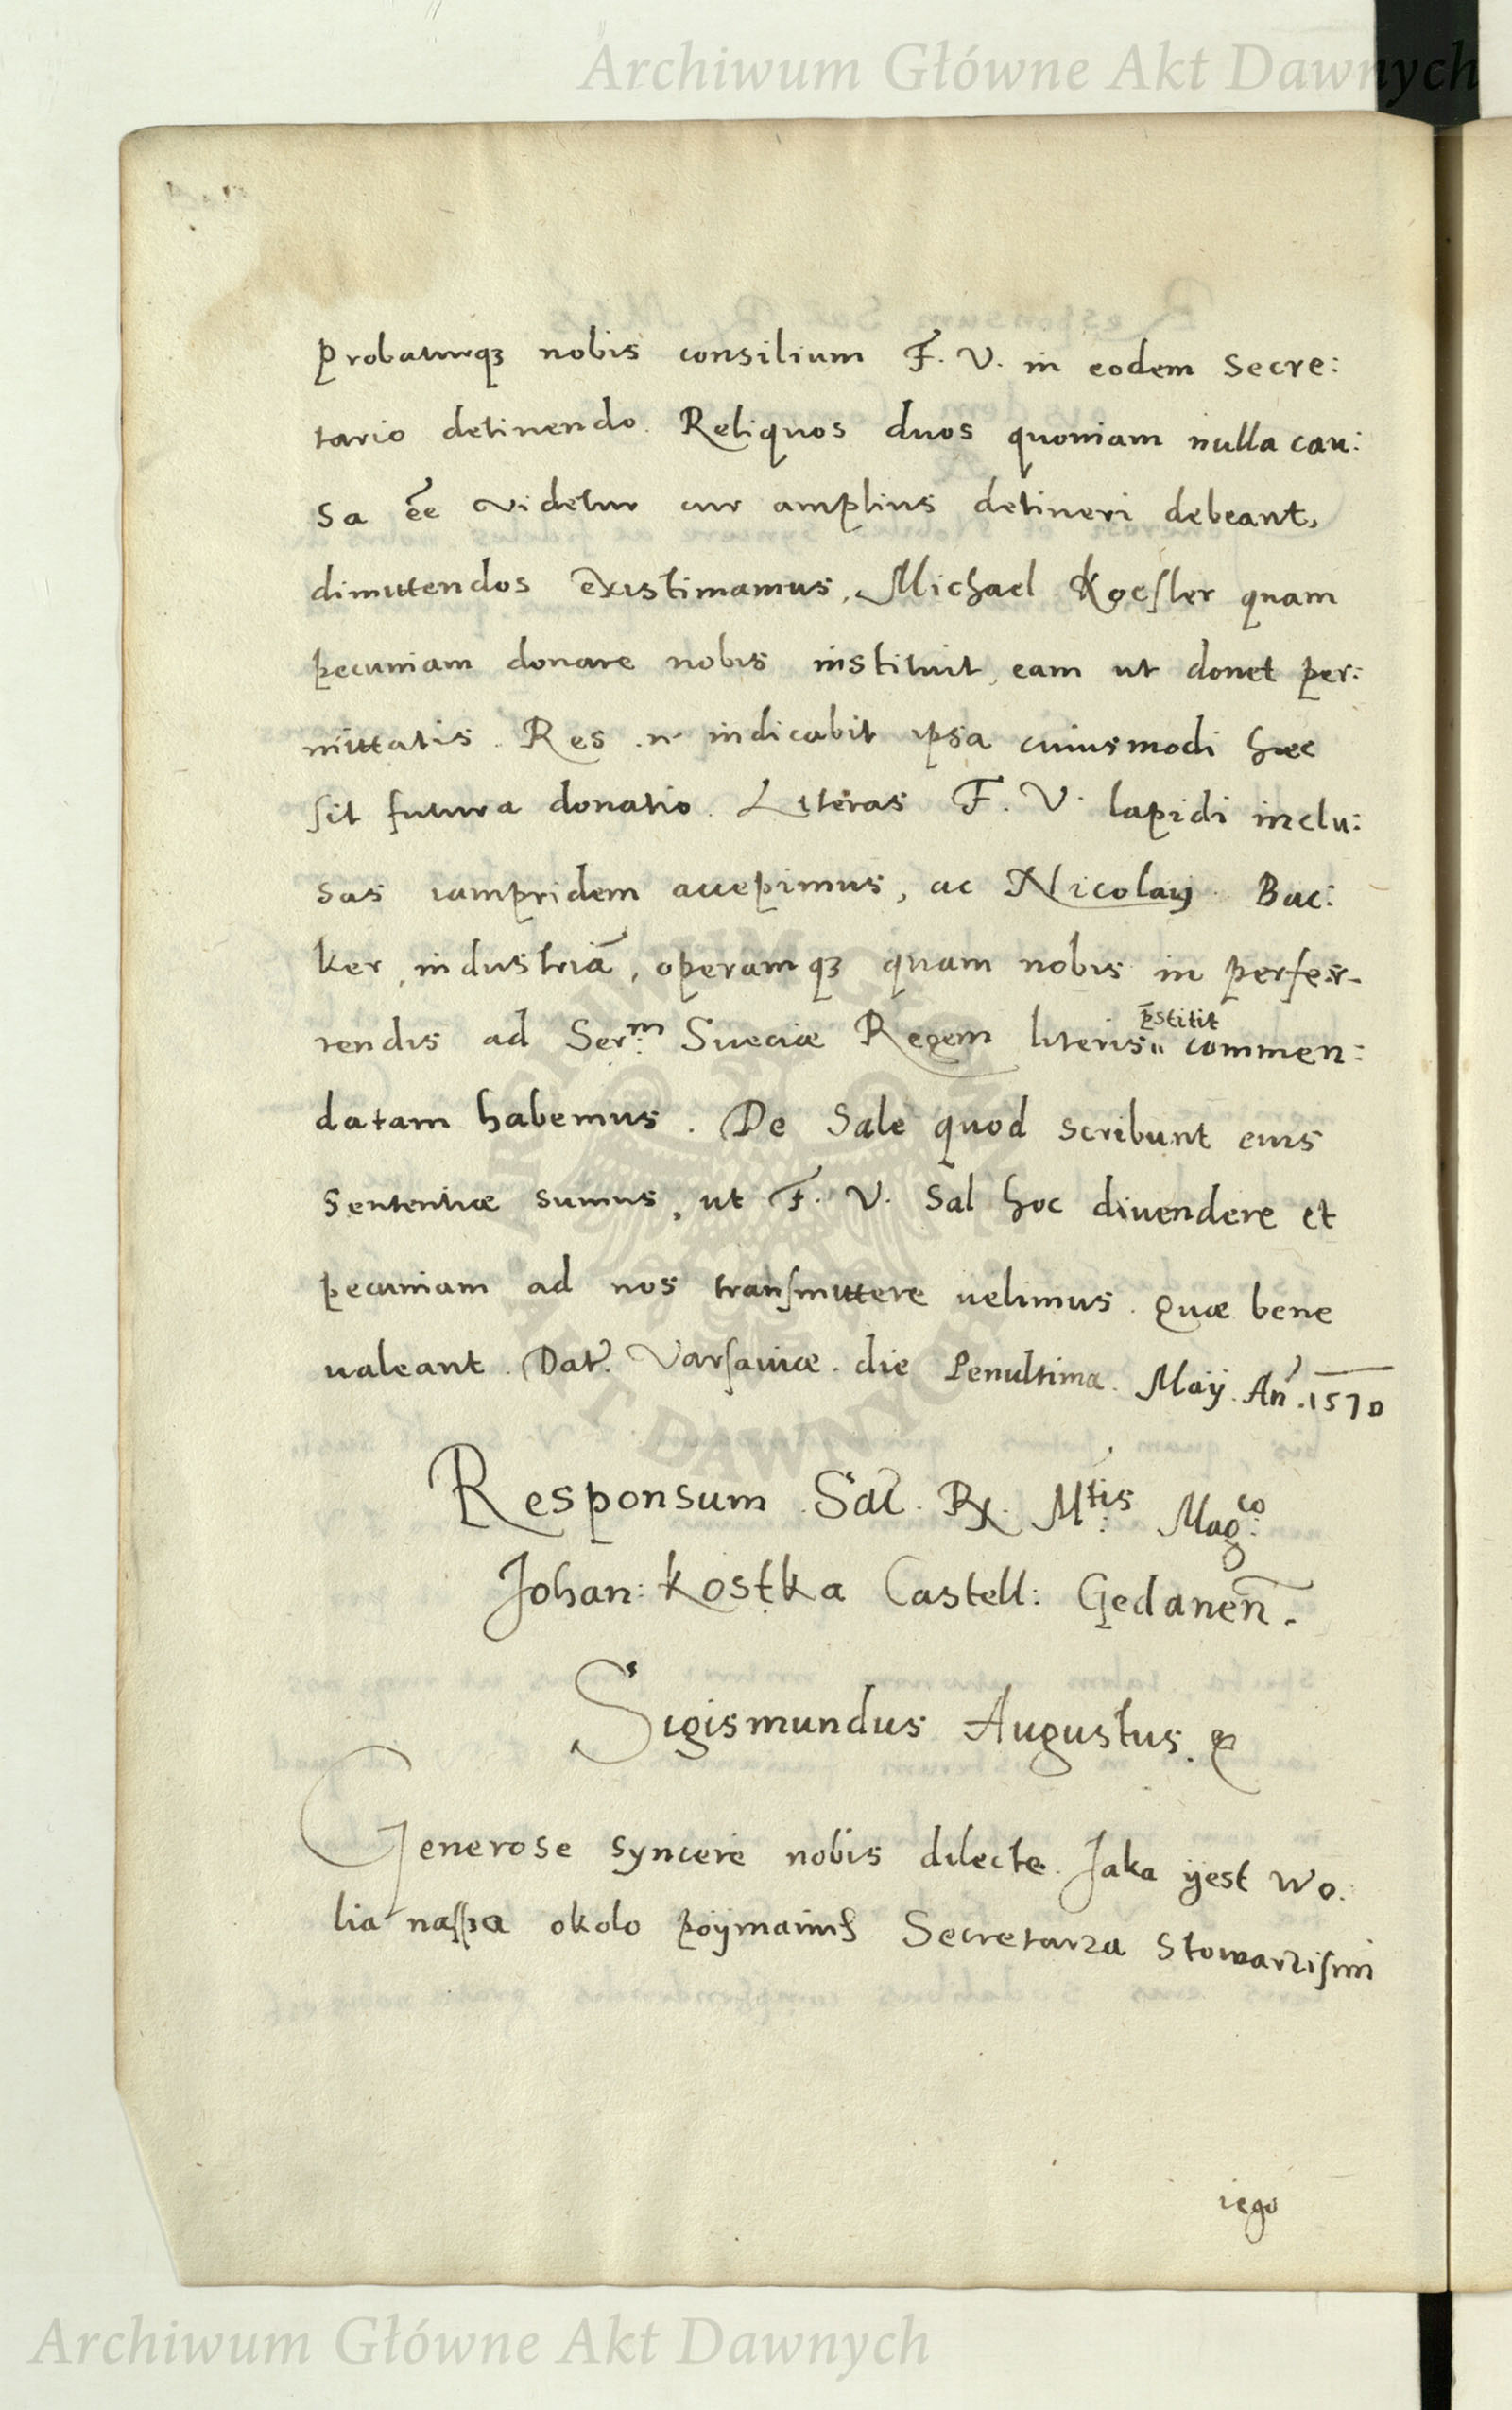 Archiwum Główne Akt Dawnych
probaturqꝫ nobis consilium F. V. in eodem Secre:
tario detinendo. Reliquos duos quoniam nulla cau:
sa ēe videtur cur amplius detineri debeant,
dimittendos existimamus. Michael Koesler quam
pecuniam donare nobis instituit, eam ut donet per:
mittatis. Res .n. indicabit ipsa cuiusmodi hæc
sit futura donatio. Literas F. V. lapidi inclu:
sas iampridem accepimus, ac Nicolaij Bac:
ker, industriā, operamqꝫ quam nobis in perfer-
rendis ad Ser:m Sueciæ Regem literis p̄stitit commen:
datam habemus. De Sale quod scribunt eius
Sententiæ sumus, ut F. V. Sal hoc divendere et
pecuniam ad nos transmittere uelimus. Quæ bene
ualeant. Dat. Varsaviæ. die Penultima. Maij. An. 1570
Responsum Sac. Rx. M:tis Mag:co
Johan: Kostka Castell: Gedanen̄.
Sigismundus Augustus. &
Generose syncere nobis dilecte. Jaka yest Wo:
lia nassza okolo poÿmainiß Secretarza Stowarzismi
iego
ARCHIWUM GŁÓWNE AKT DAWNYCH
Archiwum Główne Akt Dawnych